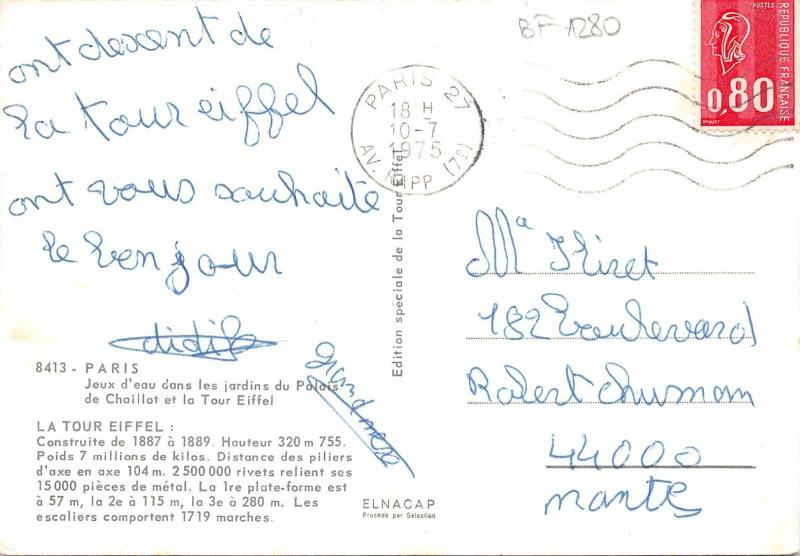 BF-1280
POSTES
RÉPUBLIQUE FRANÇAISE
0,80
PARIS 27
18 H
10-7
1975
AV. RAPP (7e)
ont desent de
la tour eiffel
ont vous souhaite
le bonjour
didife
grandmere
Ma Kiret
182 boulevard
Robert chumam
44000
nante
Edition spéciale de la Tour Eiffel
8413 - PARIS
Jeux d'eau dans les jardins du Palais
de Chaillot et la Tour Eiffel
LA TOUR EIFFEL :
Construite de 1887 à 1889. Hauteur 320 m 755.
Poids 7 millions de kilos. Distance des piliers
d'axe en axe 104 m. 2 500 000 rivets relient ses
15 000 pièces de métal. La 1re plate-forme est
à 57 m, la 2e à 115 m, la 3e à 280 m. Les
escaliers comportent 1719 marches.
ELNACAP
Procédé par Selection